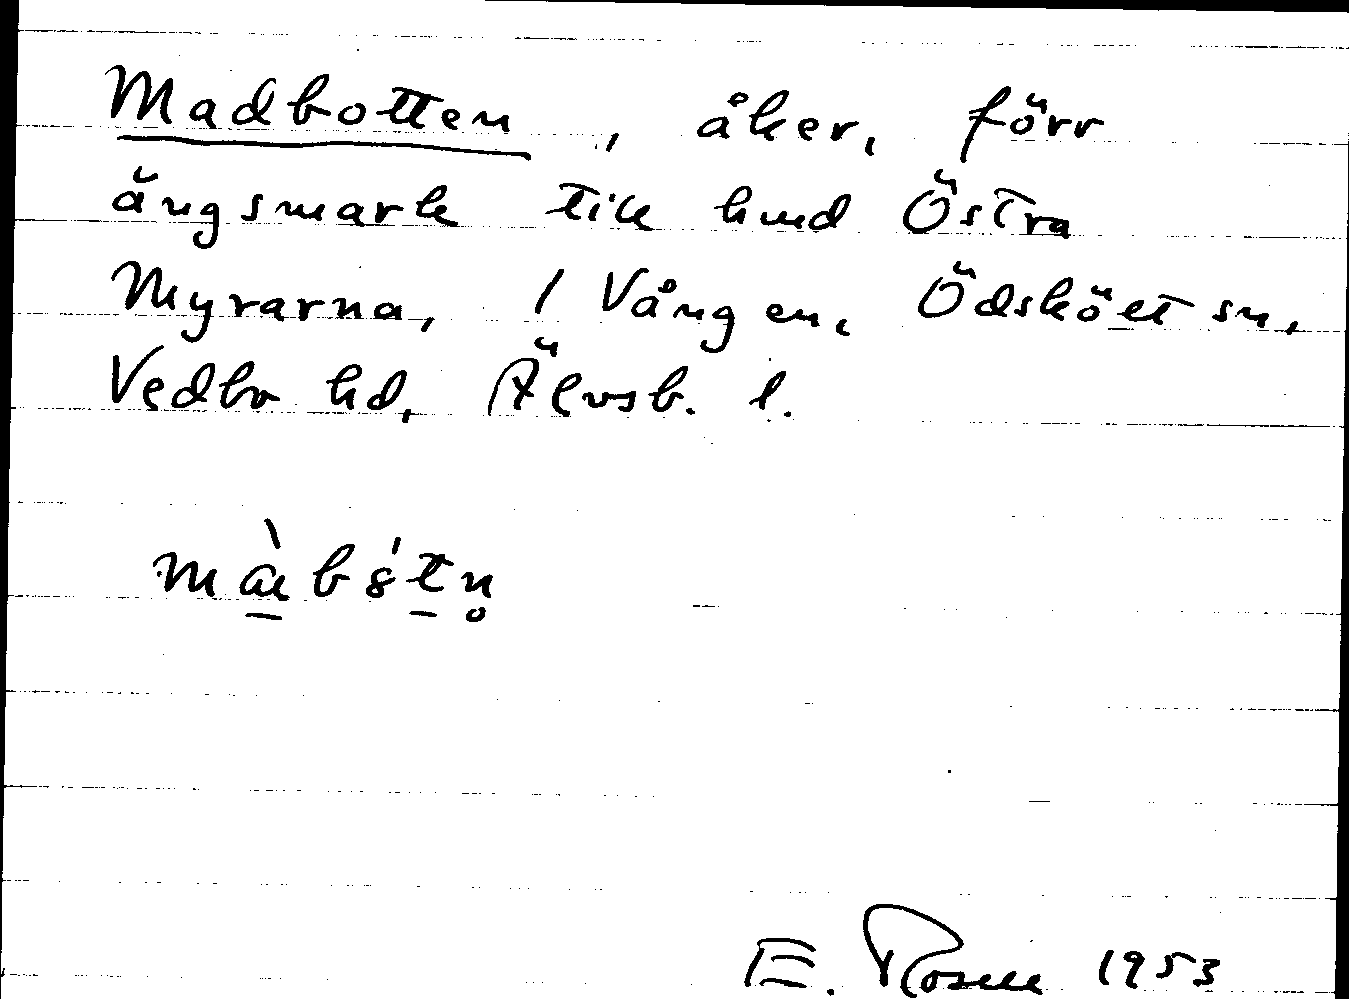 Madbotten, åker, förr
ängsmark till hmd Östra
Myrarna, 1 Vången, Ödsköet sn,
Vedbo hd, Älvsb. l.
E. Rosell 1953